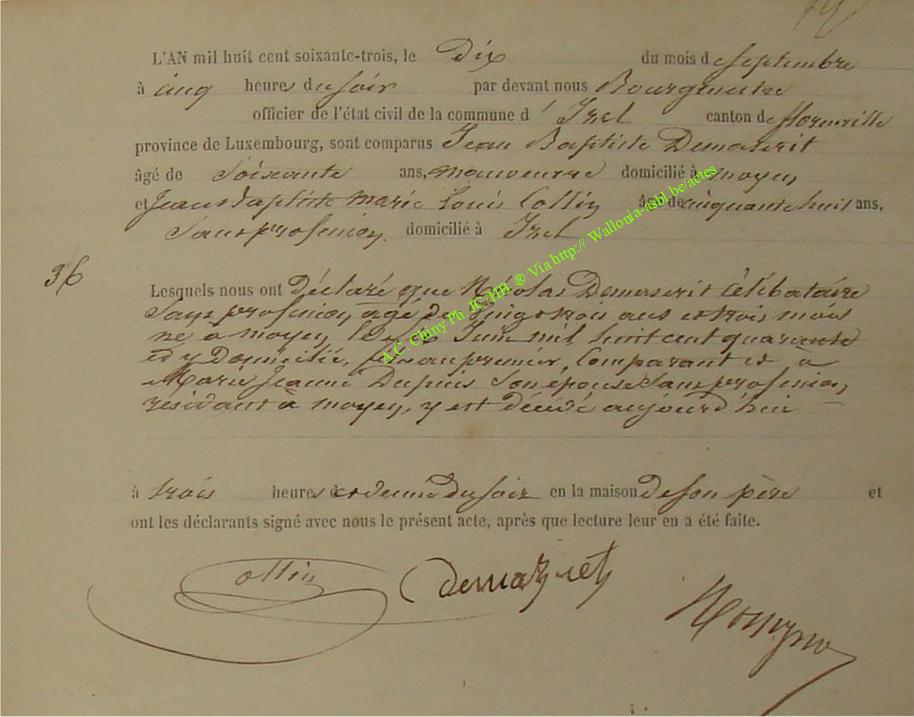 L'AN mil huit cent soixante-trois, le Dix du mois de septembre
à cinq heures du soir par devant nous Bourgmestre
officier de l'état civil de la commune d' Izel canton de florenville
province de Luxembourg, sont comparus Jean Baptiste Demaserit
âgé de soixante ans, manœuvre domicilié à moyen
et Jean Baptiste marie Louis Collin âgé de cinquante huit ans,
sans profession domicilié à Izel
36
Lesquels nous ont déclaré que Nicolas Demeserit célibataire
sans profession agé de vingt trois ans et trois mois
né à moyen, le Juin mil huit cent quarante
et y Domicilié, fils au premier, Comparant et à
Marie Jeanne Dupuis son épouse sans profession,
résidant à moyen, y est décédé aujourd'hui
à trois heures et demie du soir en la maison de son père et
ont les déclarants signé avec nous le présent acte, après que lecture leur en a été faite.
Collin demazret
A.C. Chiny Ph JC/HB ® Via http:// Wallonia-asbl.be/actes